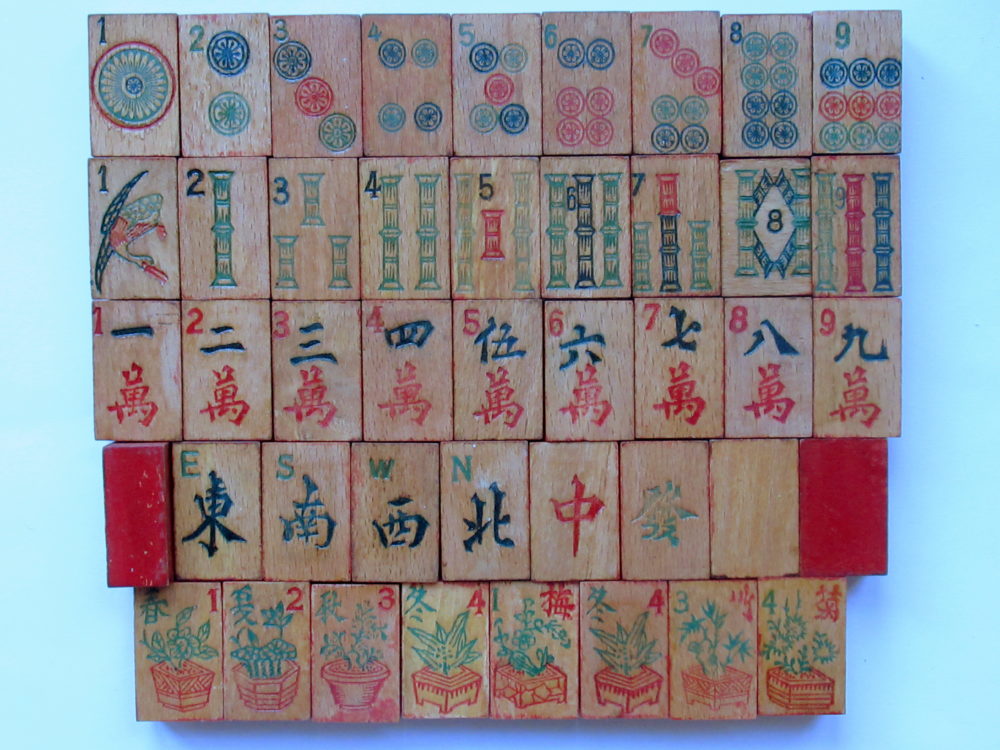 1 2 3 4 5 6 7 8 9
1 2 3 4 5 6 7 8 9
1 一 2 二 3 三 4 四 5 伍 6 六 7 七 8 八 9 九
萬 萬 萬 萬 萬 萬 萬 萬 萬
E S W N
東 南 西 北 中 發
春 1 夏 2 秋 3 冬 4 1 梅 冬 4 3 竹 4 菊